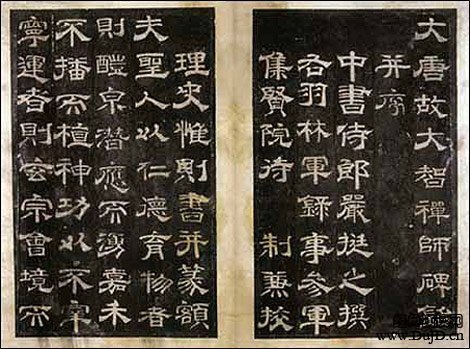 大唐故大智禪師碑銘
并序
中書侍郎嚴挺之撰
右羽林軍錄事參軍
集賢院待 制兼挍
理史惟則書并篆額
夫聖人以仁德育物者
則醴泉潛應而湧嘉禾
不播而植神功以不宰
寧運者則玄宗會境而